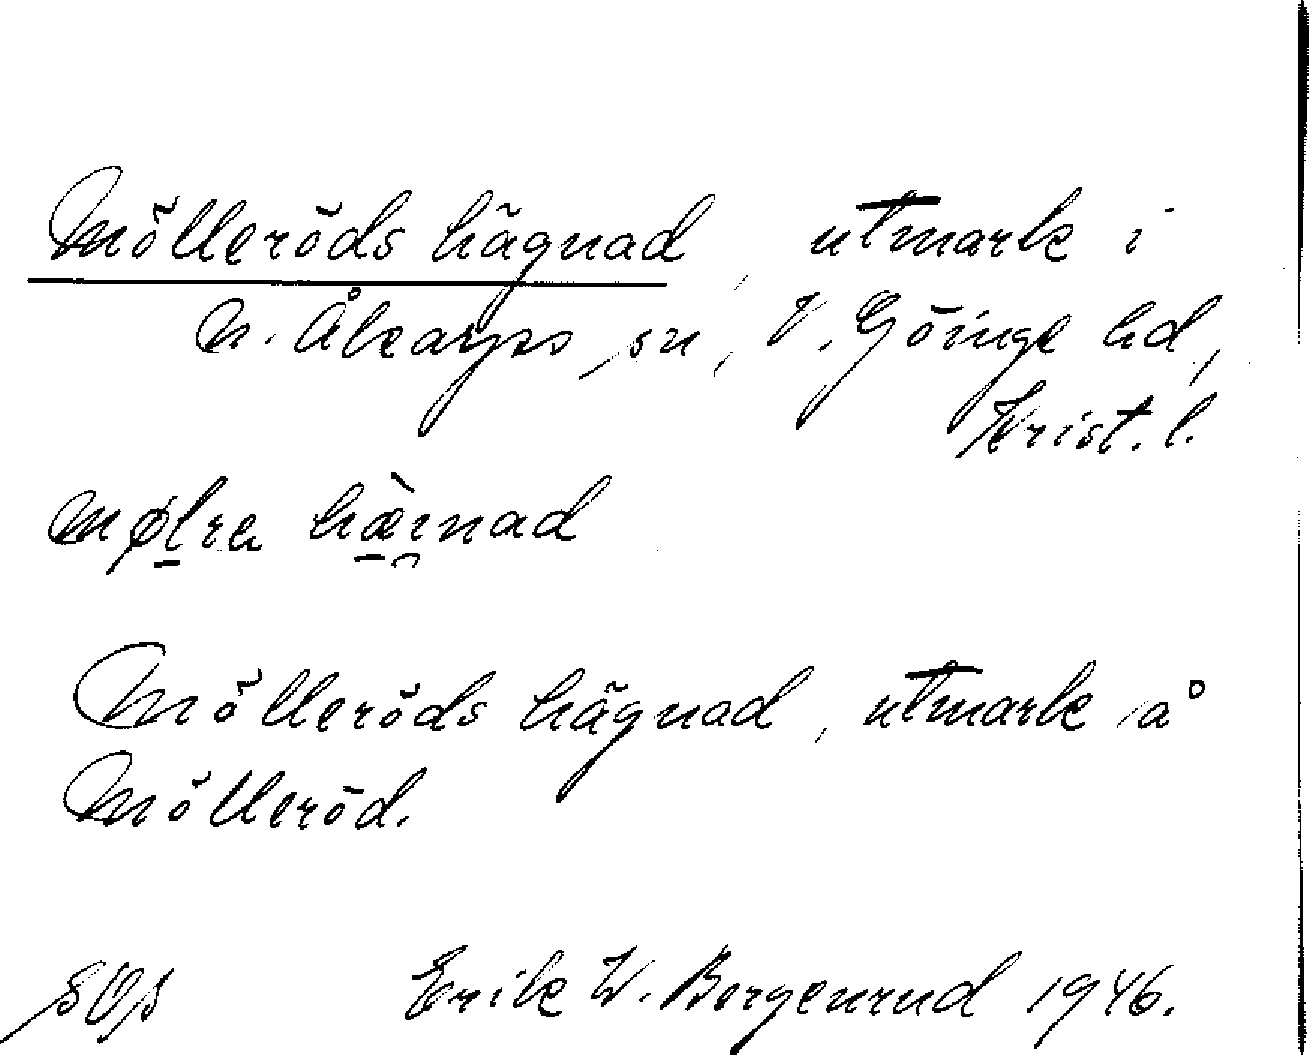 Mölleröds hägnad, utmark i
N. Åkarps sn, V. Göinge hd,
Krist. l.
mølra hæ̀ɪnad
Mölleröds hägnad, utmark å
Mölleröd.
Erik W. Borgenrud 1946.